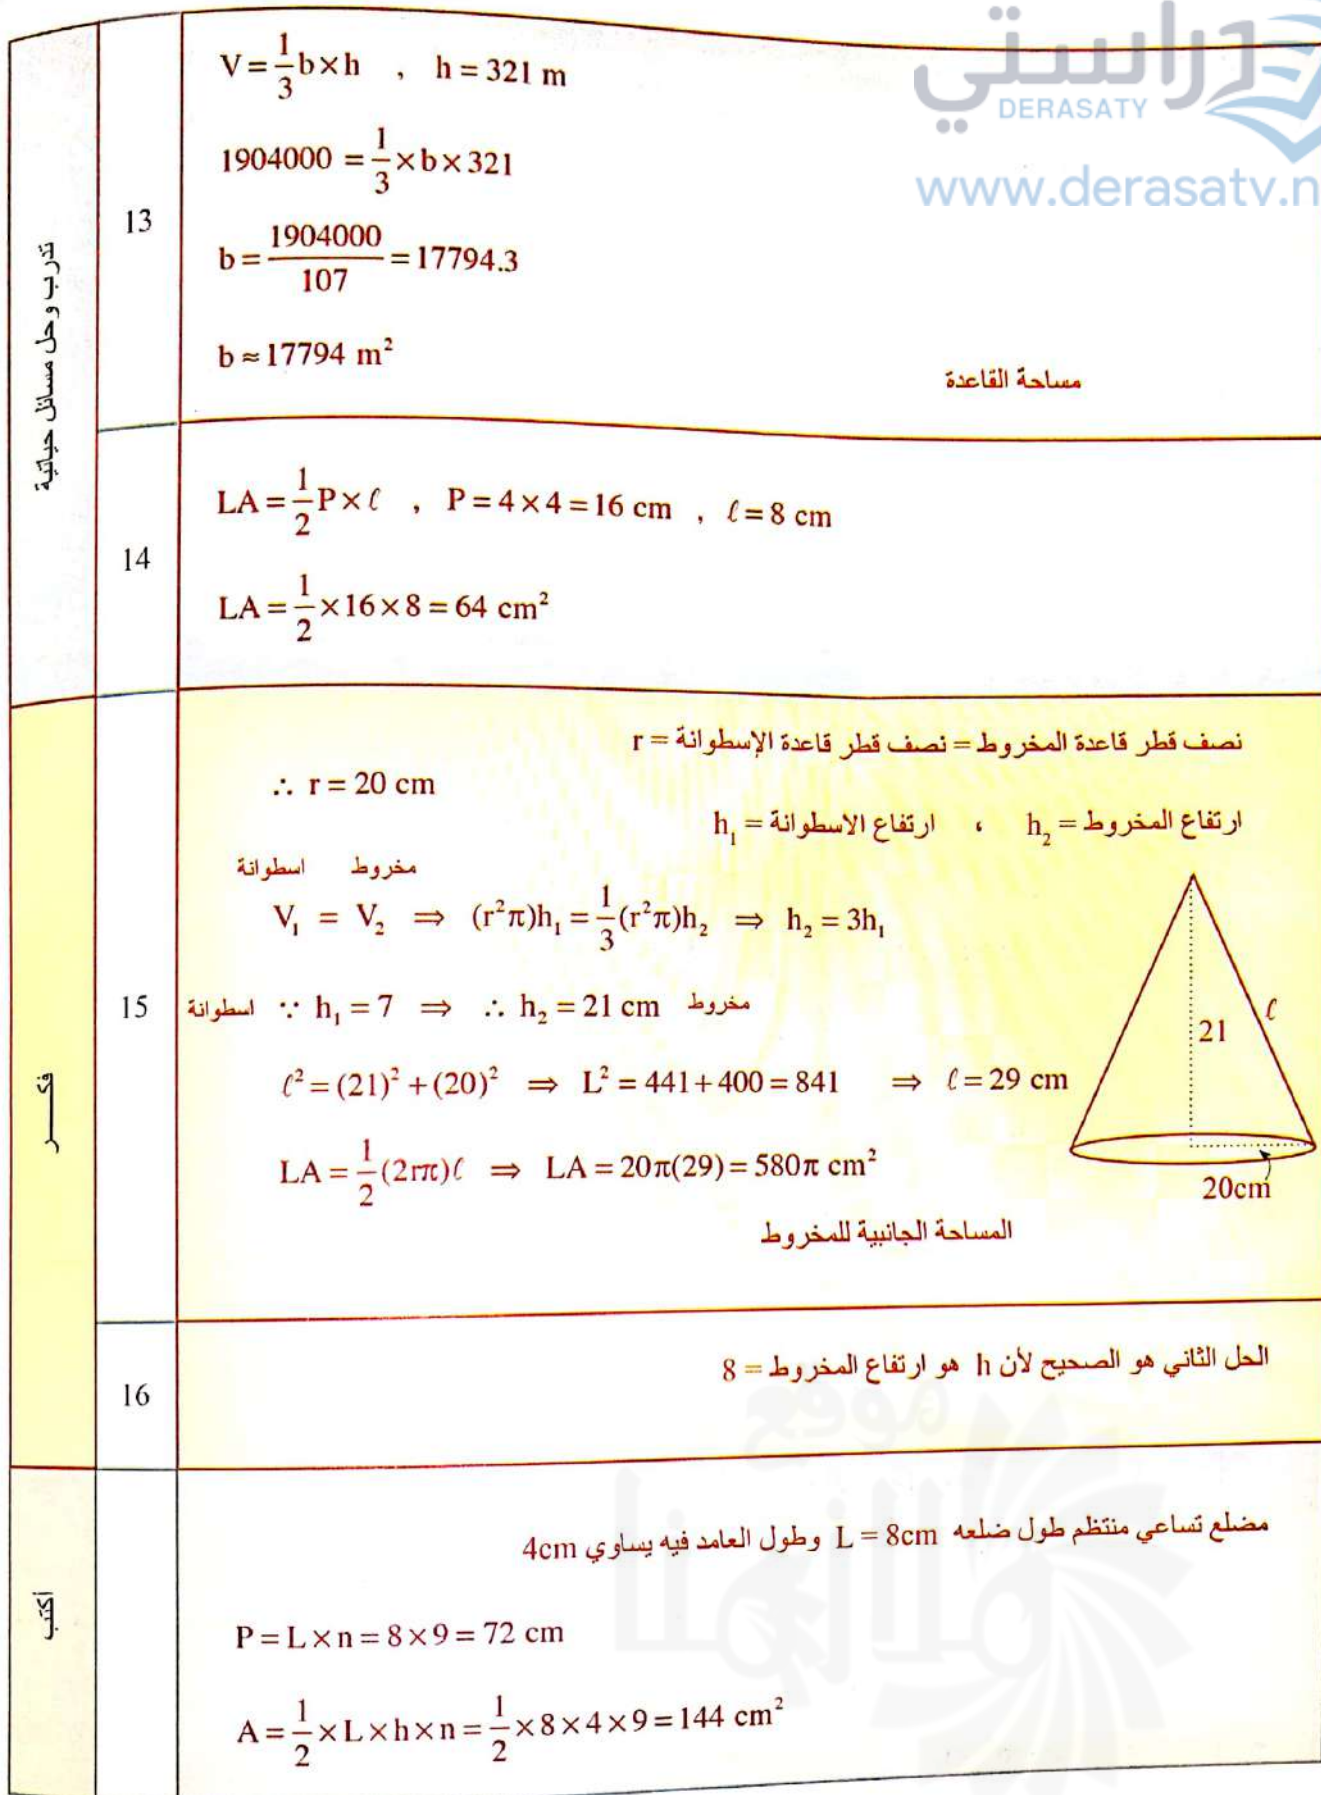 دراستي
DERASATY
www.derasatv.n
تدرب وحل مسائل حياتية
13
V = 1/3 b × h , h = 321 m
1904000 = 1/3 × b × 321
b = 1904000/107 = 17794.3
b ≈ 17794 m²
مساحة القاعدة
14
LA = 1/2 P × ℓ , P = 4 × 4 = 16 cm , ℓ = 8 cm
LA = 1/2 × 16 × 8 = 64 cm²
فكـــــر
15
نصف قطر قاعدة المخروط = نصف قطر قاعدة الإسطوانة = r
∴ r = 20 cm
ارتفاع المخروط = h₂ ، ارتفاع الاسطوانة = h₁
مخروط اسطوانة
V₁ = V₂ ⇒ (r²π)h₁ = 1/3 (r²π)h₂ ⇒ h₂ = 3h₁
اسطوانة ∵ h₁ = 7 ⇒ ∴ h₂ = 21 cm مخروط
ℓ² = (21)² + (20)² ⇒ L² = 441 + 400 = 841 ⇒ ℓ = 29 cm
LA = 1/2 (2rπ)ℓ ⇒ LA = 20π(29) = 580π cm²
المساحة الجانبية للمخروط
21
ℓ
20cm
16
الحل الثاني هو الصحيح لأن h هو ارتفاع المخروط = 8
أكتب
مضلع تساعي منتظم طول ضلعه L = 8cm وطول العامد فيه يساوي 4cm
P = L × n = 8 × 9 = 72 cm
A = 1/2 × L × h × n = 1/2 × 8 × 4 × 9 = 144 cm²
موقع
ملازمنا